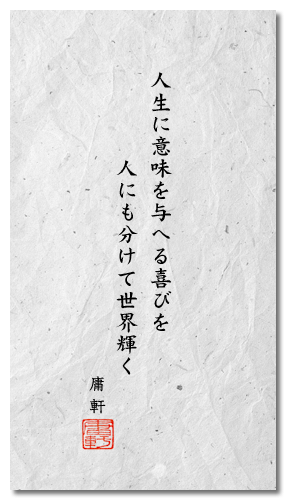 人生に意味を与へる喜びを
人にも分けて世界輝く
庸軒
庸軒